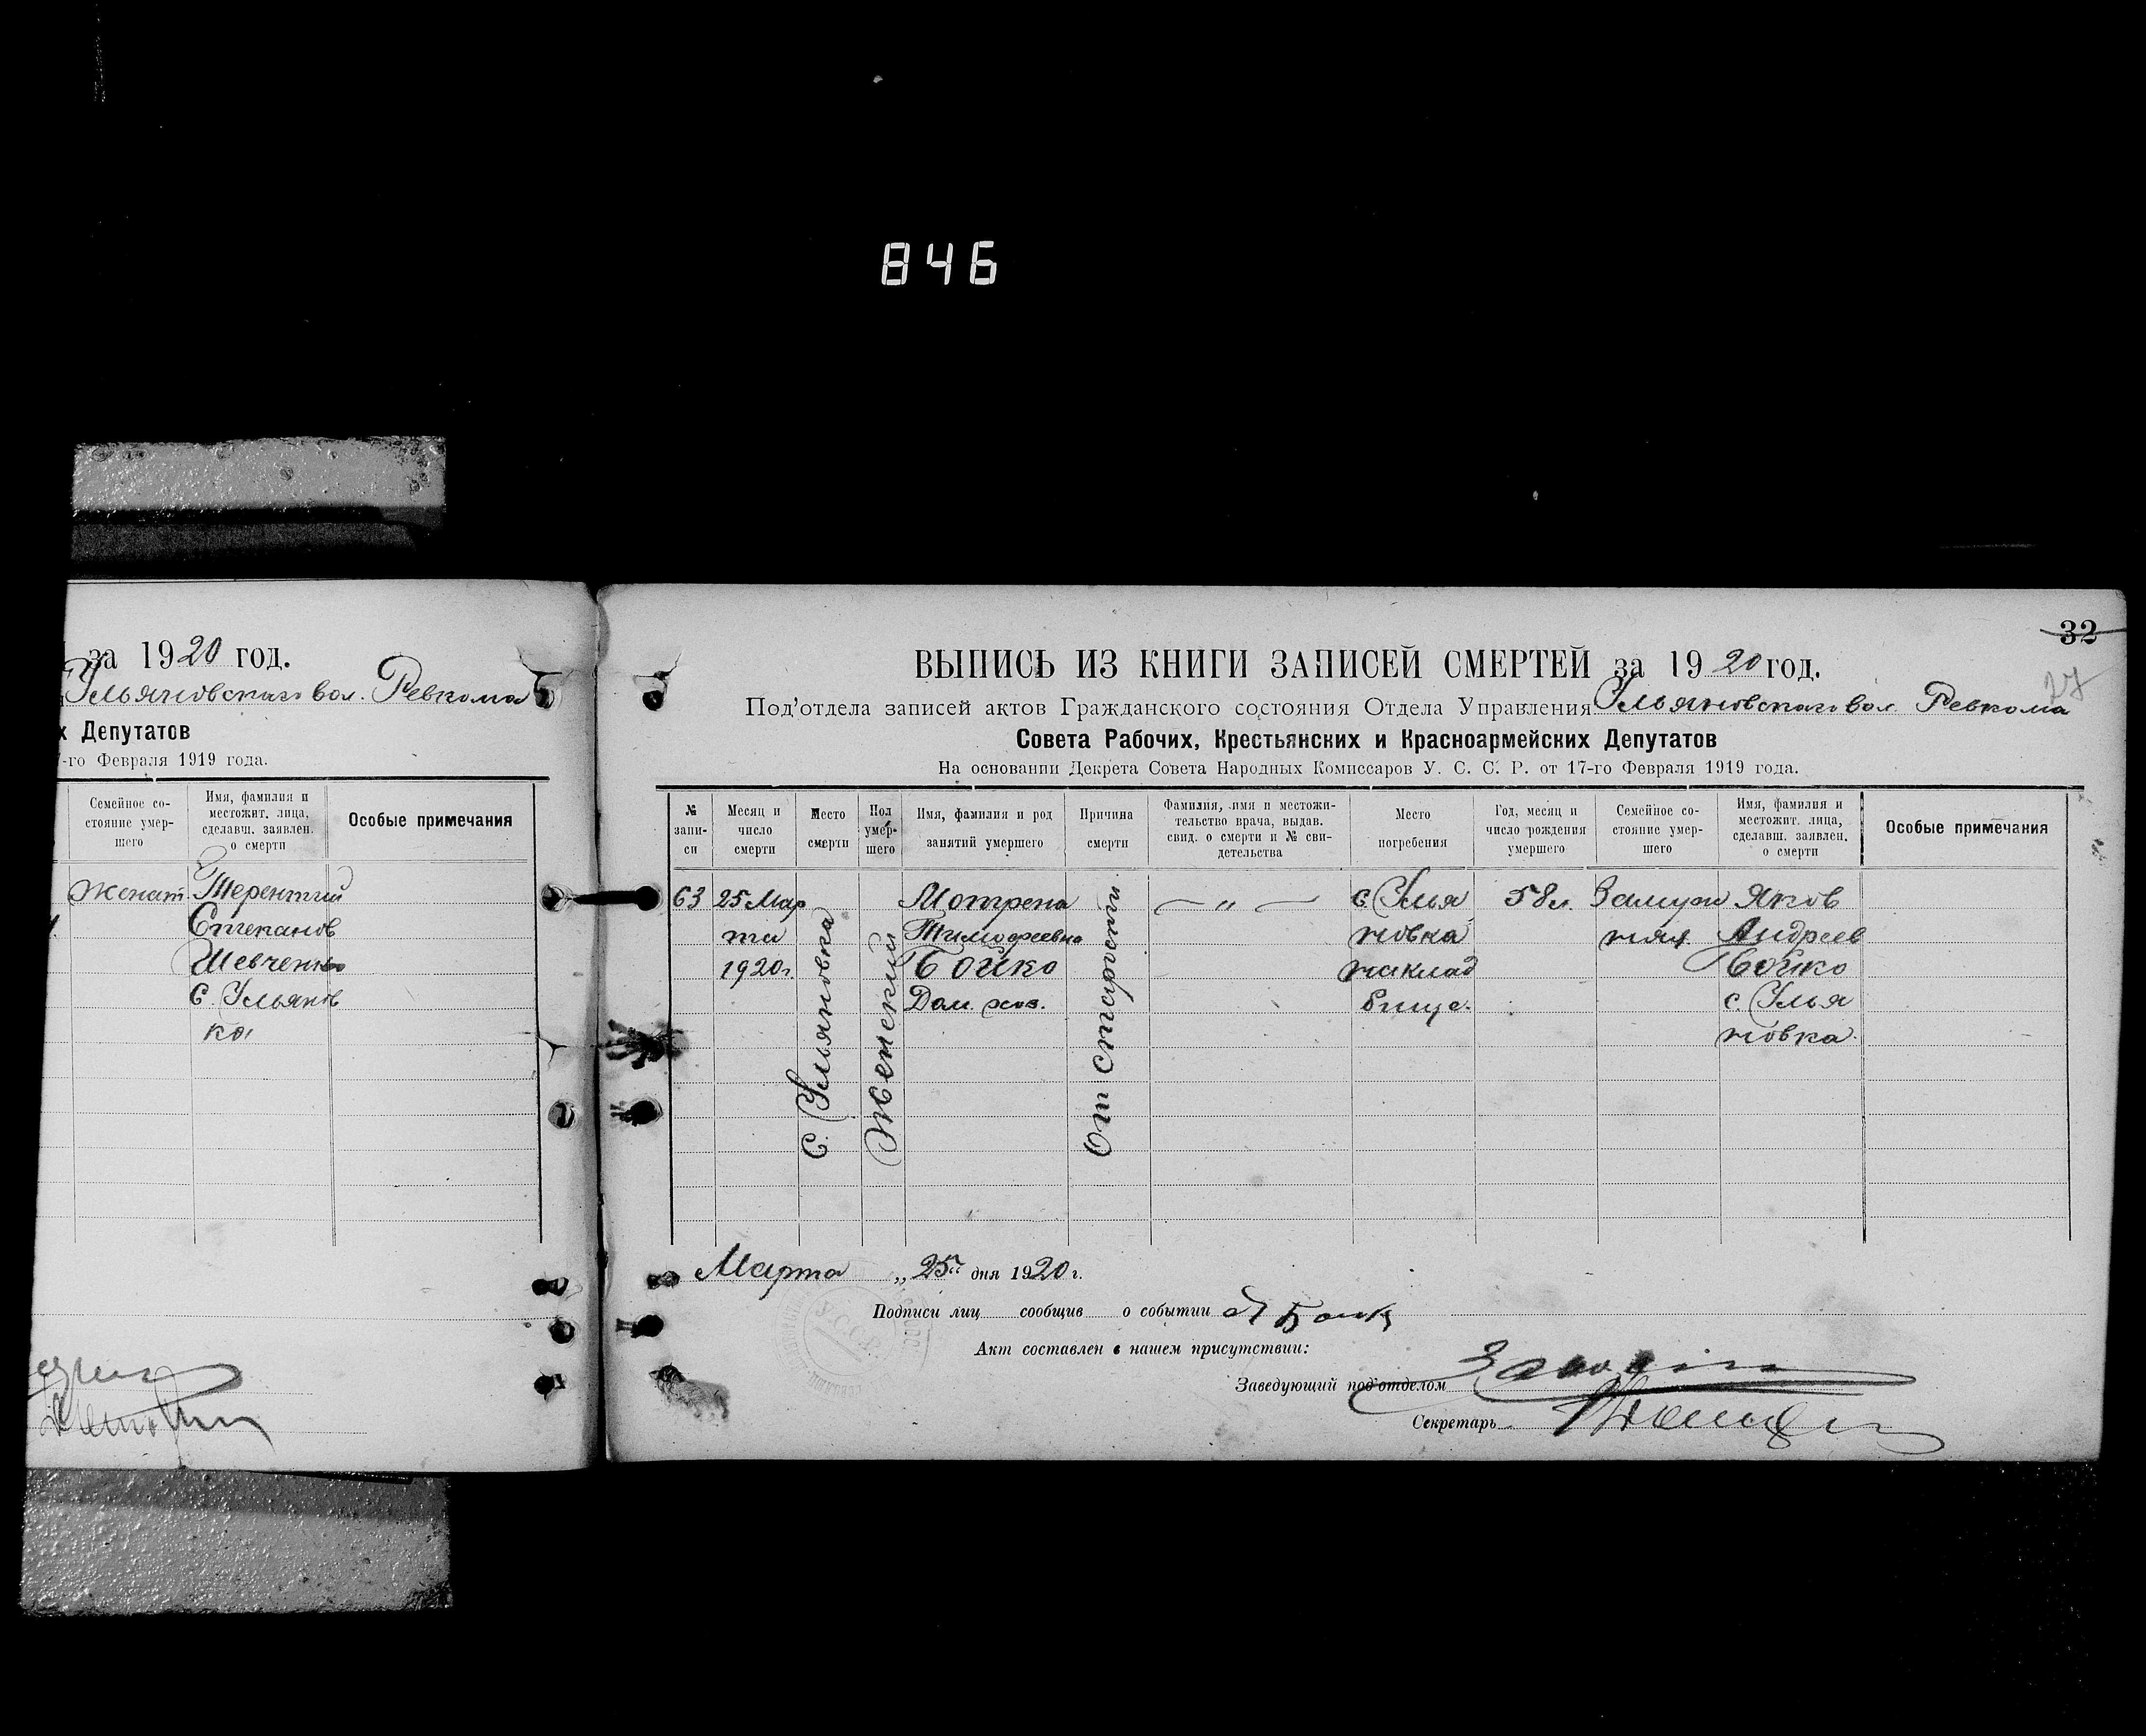 846
за 1920 год.
Ульяновского вол. Ревкома
х Депутатов
-го Февраля 1919 года.
Семейное со-
стояние умер-
шего
Имя, фамилия и
местожит. лица,
сделавш. заявлен.
о смерти
Особые примечания
Женат
Терентий
Степанов
Шевченко
С. Ульянов
ка
32
27
ВЫПИСЬ ИЗ КНИГИ ЗАПИСЕЙ СМЕРТЕЙ за 1920 год.
Под'отдела записей актов Гражданского состояния Отдела Управления Ульяновского вол. Ревкома
Совета Рабочих, Крестьянских и Красноармейских Депутатов
На основании Декрета Совета Народных Комиссаров У. С. С. Р. от 17-го Февраля 1919 года.
№
запи-
си
Месяц и
число
смерти
Место
смерти
Пол
умер-
шего
Имя, фамилия и род
занятий умершего
Причина
смерти
Фамилия, имя и местожи-
тельство врача, выдав.
свид. о смерти и № сви-
детельства
Место
погребения
Год, месяц и
число рождения
умершего
Семейное со-
стояние умер-
шего
Имя, фамилия и
местожит. лица,
сделавш. заявлен.
о смерти
Особые примечания
63
25 Мар
та
1920г.
С. Ульяновка
Женский
Мотрена
Тимофеевна
Бойко
Дом. хоз.
От старости
— „ —
с. Улья
новка
на клад
бище.
58 л.
Замуж
няя.
Яков
Андреев
Бойко
с. Улья
новка.
Марта „25" дня 1920 г.
Подписи лиц сообщив о событии Я Боик
Акт составлен в нашем присутствии:
Заведующий под'отделом
Секретарь